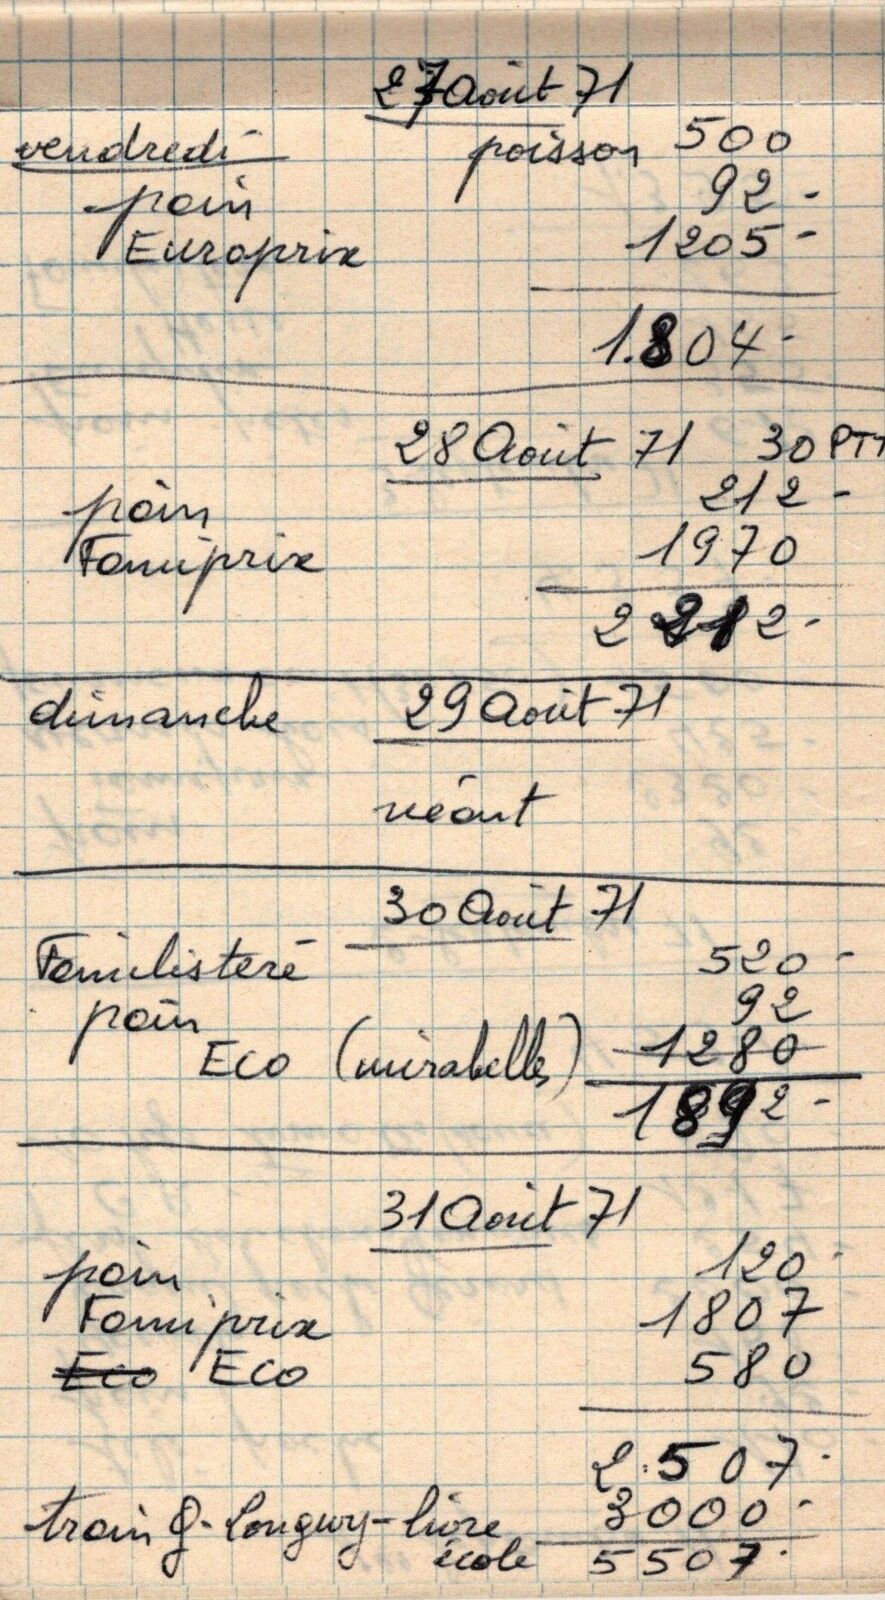 27 Août 71
vendredi poisson 500
pain 92 -
Europrix 1205 -
1.804 -
28 Août 71 30 PTT
pain 212 -
Famiprix 1970
2212 -
dimanche 29 Août 71
néant
30 Août 71
Familisteré 520 -
pain 92
Eco (mirabelles) 1280
1892 -
31 Août 71
pain 120 -
Famiprix 1807
Eco Eco 580
2.507 -
train G - Longwy - livre 3000 -
école 5507 -